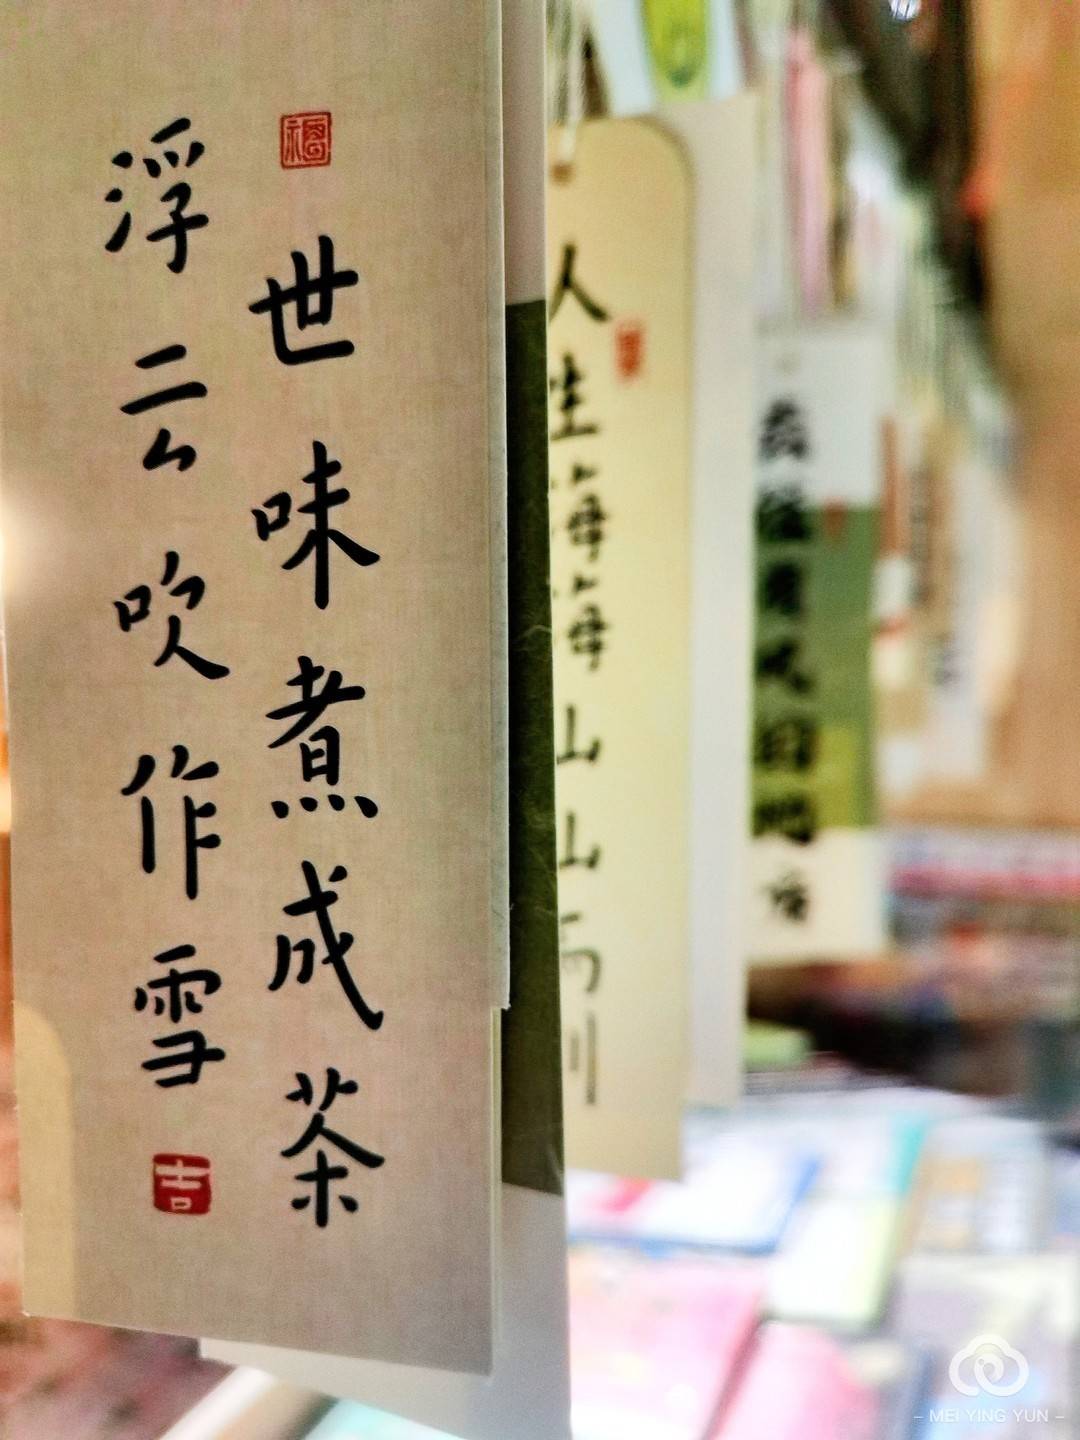 福
世味煮成茶
浮云吹作雪
吉
人生海海山山而川
– MEI YING YUN –